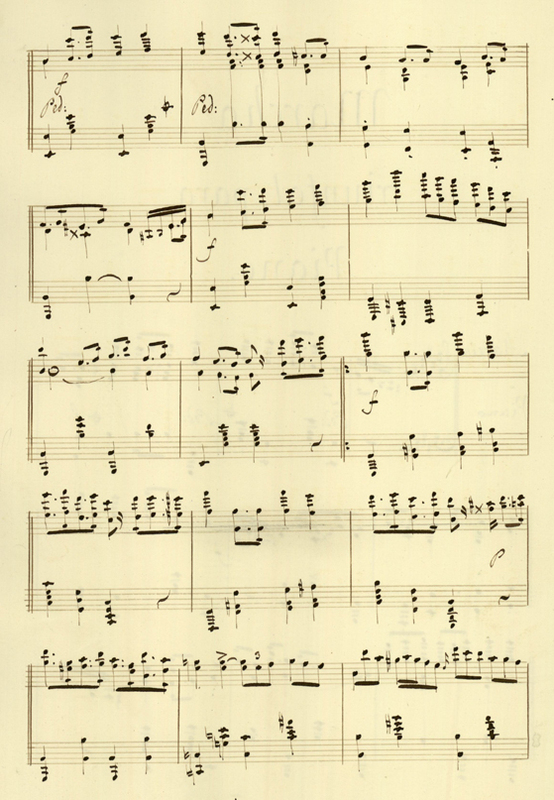 f
Ped: Ped:
f
f
p
3